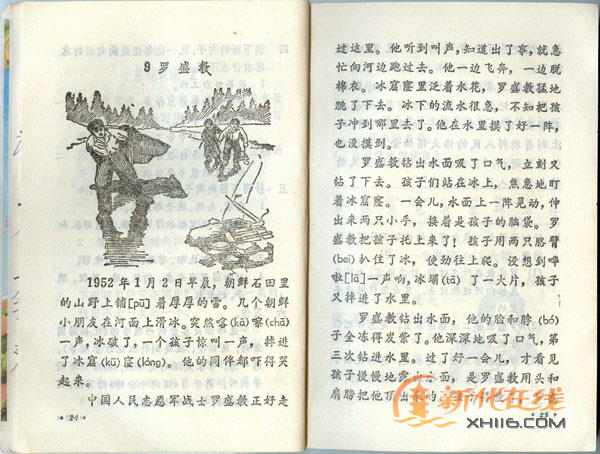 9 罗盛教
1952年1月2日早晨，朝鲜石田里
的山野上铺[pū]着厚厚的雪。几个朝鲜
小朋友在河面上滑冰。突然喀(kā)嚓(chā)
一声，冰破了，一个孩子惊叫一声，掉进
了冰窟(kū)窿(lóng)。他的同伴都吓得哭
起来。
中国人民志愿军战士罗盛教正好走
·24·
过这里。他听到叫声，知道出了事，就急
忙向河边跑过去。他一边飞奔，一边脱
棉衣。冰窟窿里泛着水花，罗盛教猛地
跳了下去。冰下的流水很急，不知把孩
子冲到哪里去了。他在水里摸了好一阵，
也没摸到。
罗盛教钻出水面吸了口气，立刻又
钻了下去。孩子们站在冰上，焦急地盯
着冰窟窿。一会儿，水面上一阵晃动，伸
出来两只小手，接着是孩子的脑袋。罗
盛教把孩子托上来了！孩子用两只胳臂
(bei)扒住了冰，使劲往上爬。没想到哗
啦[lā]一声响，冰塌(tā)了一大片，孩子
又掉进了水里。
罗盛教钻出水面，他的脸和脖(bó)
子全冻得发紫了。他深深地吸了口气，第
三次钻进水里。过了好一会儿，才看见
孩子慢慢地露出水面，是罗盛教用头和
肩膀把他顶出来的。
·25·
新化在线
XHII6.COM